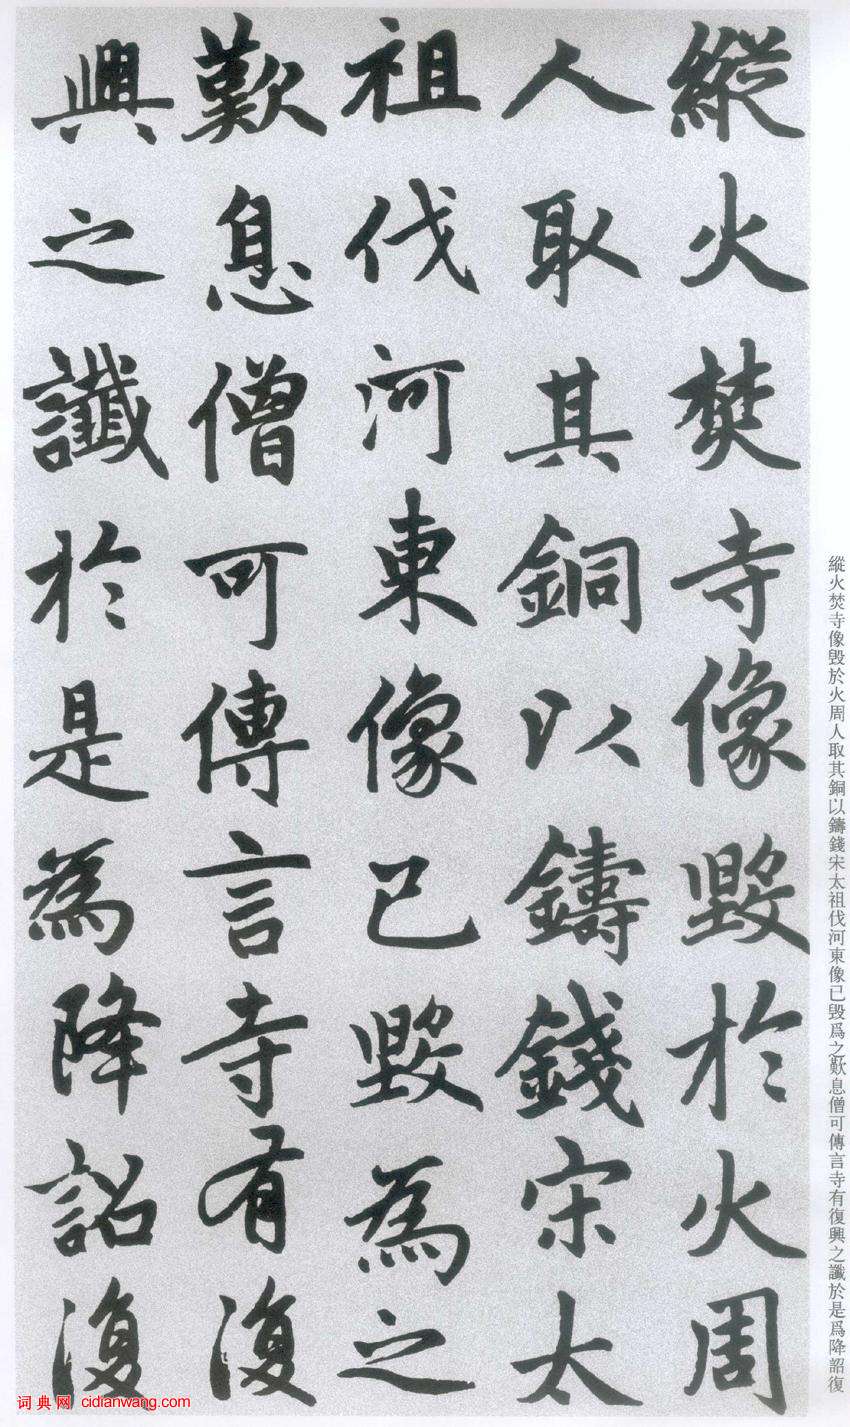 縱火焚寺像毀於火周
人取其銅以鑄錢宋太
祖伐河東像已毀為之
歎息僧可傳言寺有復
興之讖於是為降詔復
縱火焚寺像毀於火周人取其銅以鑄錢宋太祖伐河東像已毀爲之歎息僧可傳言寺有復興之讖於是爲降詔復
词典网 cidianwang.com